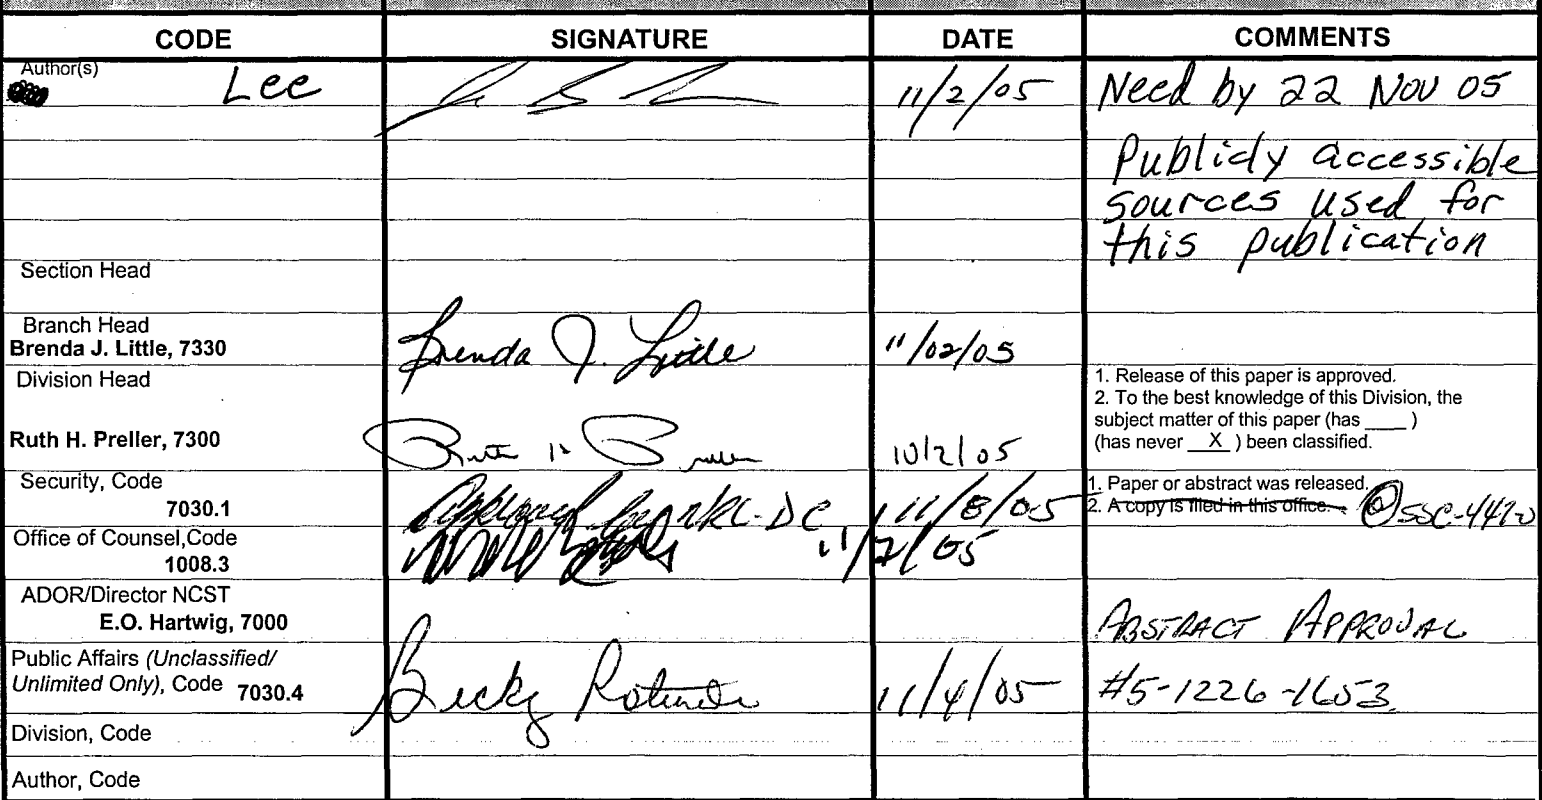 CODE SIGNATURE DATE COMMENTS
Author(s)
Lee 11/2/05 Need by 22 Nov 05
Publicly accessible
sources used for
this publication
Section Head
Branch Head
Brenda J. Little, 7330 Brenda J. Little 11/02/05
Division Head
1. Release of this paper is approved.
2. To the best knowledge of this Division, the
subject matter of this paper (has ____ )
(has never X ) been classified.
Ruth H. Preller, 7300 Ruth H Preller 10/2/05
Security, Code
7030.1 11/8/05
1. Paper or abstract was released.
2. A copy is filed in this office.
Office of Counsel,Code
1008.3 11/7/05
ADOR/Director NCST
E.O. Hartwig, 7000 ABSTRACT APPROVAL
Public Affairs (Unclassified/
Unlimited Only), Code 7030.4 Becky 11/4/05 #5-1226-1653
Division, Code
Author, Code